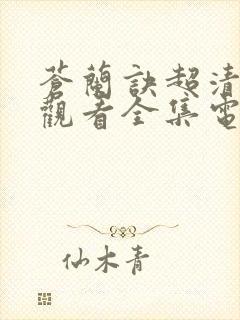 蒼蘭訣超清
觀看全集電
仙木青